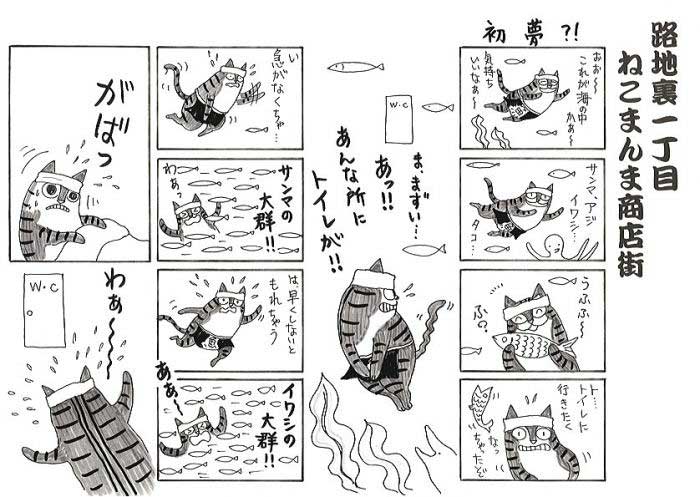 路地裏一丁目
ねこまんま商店街
初夢?!
おお~
これが海の中
かぁ~
気持ち
いいなぁ~
サンマ、アジ
イワシ…、
タコ…
うふふ~
ふ?
ト…トイレに
行きたく
なっ
ちゃったぞ
W・C
ま、まずい…
あっ!!
あんな所に
トイレが!!
い
急がなくちゃ…
サンマの
大群!!
わぁっ
は、早くしないと
もれちゃう
イワシの
大群!!
あぁ~
がばっ
W・C
わぁ~